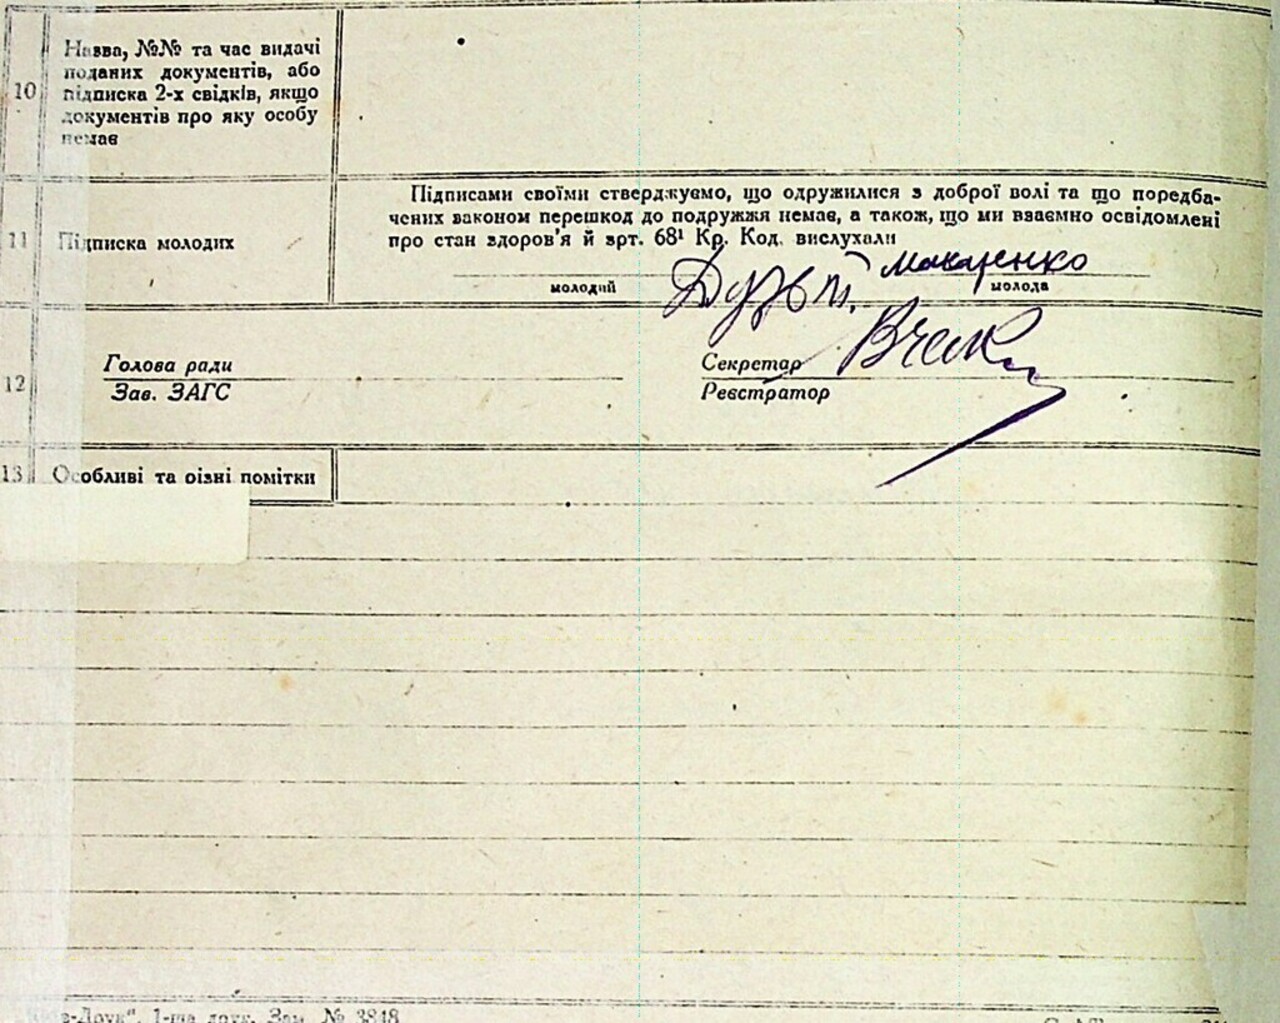 10
Назва, №№ та час видачі
поданих документів, або
підписка 2-х свідків, якщо
документів про яку особу
немає
11
Підписка молодих
Підписами своїми стверджуємо, що одружилися з доброї волі та що поредба-
чених законом перешкод до подружжя немає, а також, що ми взаємно освідомлені
про стан здоров'я й зрт. 68¹ Кр. Код. вислухали
Макаренко
молодий
молода
12
Голова ради
Зав. ЗАГС
Секретар
Реєстратор
13
Особливі та різні помітки
-Друк", 1-ша друк. Зам. № 3848